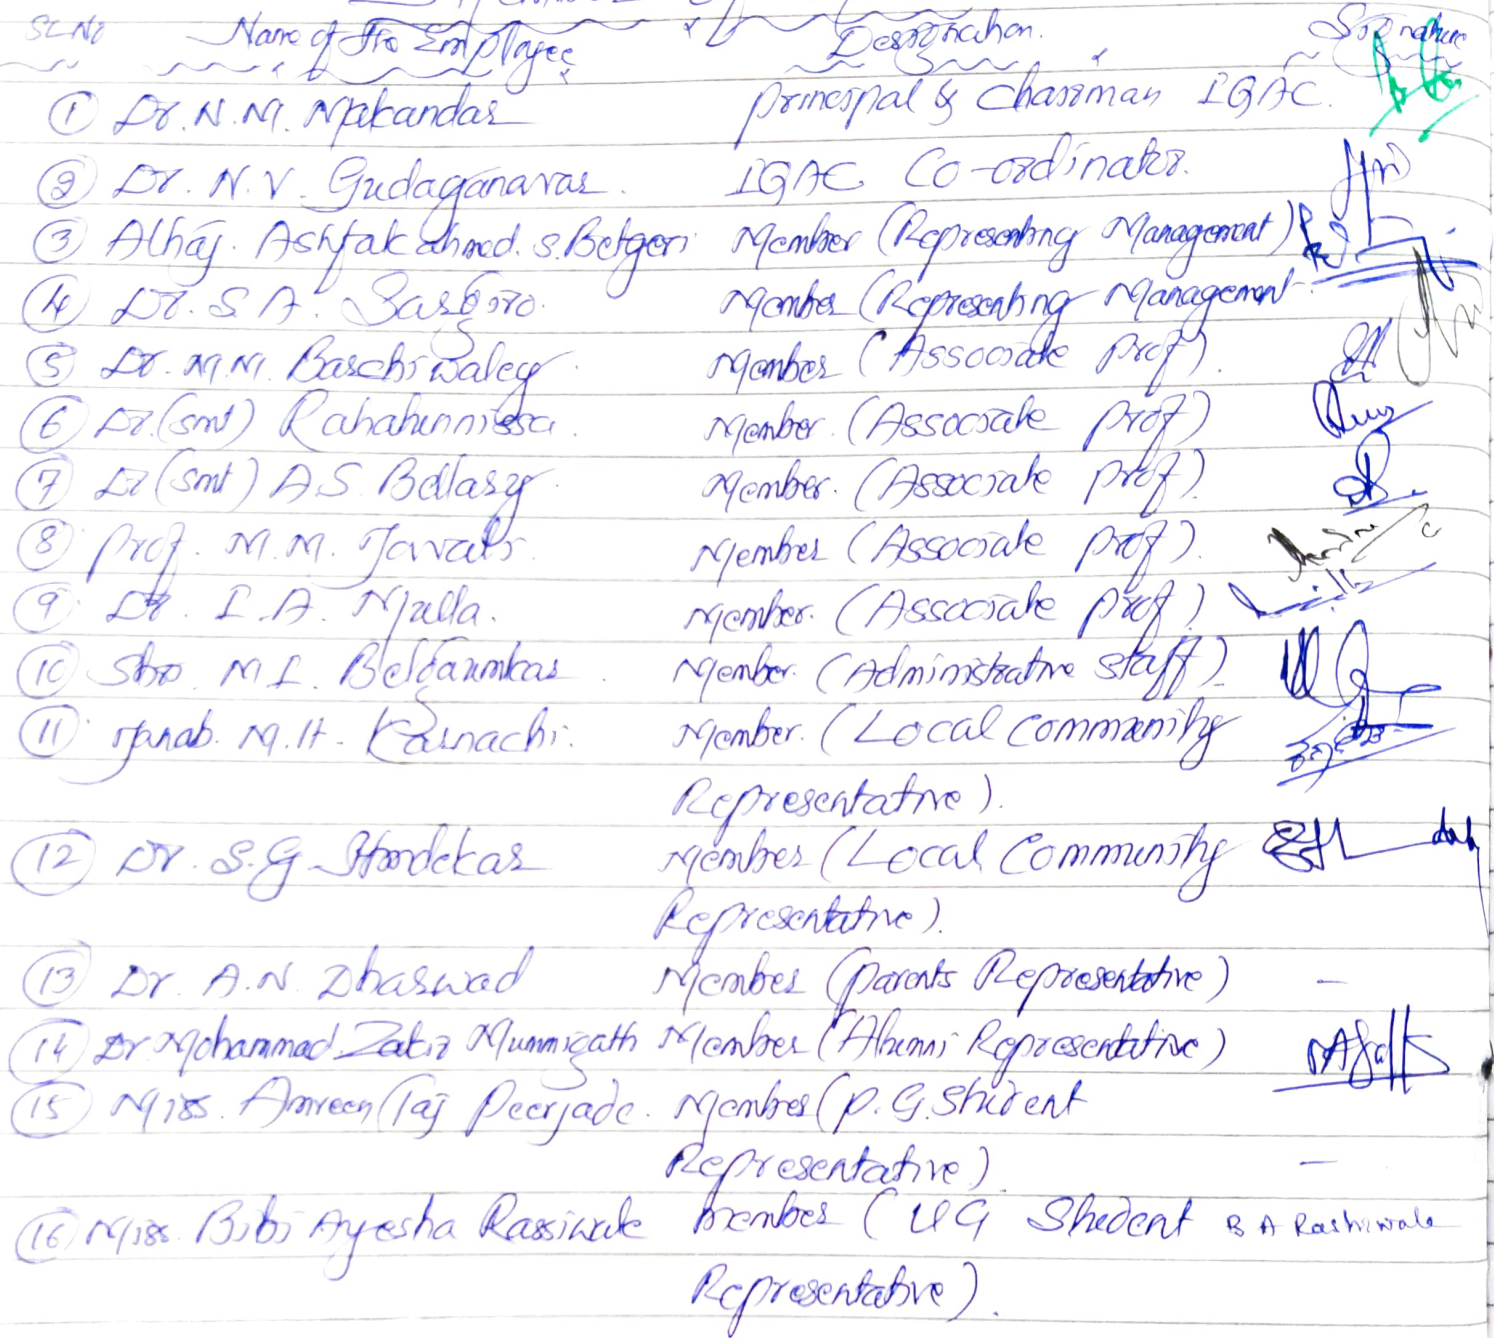 SL No Name of the Employee Designation. Signature
1 Dr. N. M. Makandar principal & Chairman IQAC.
2 Dr. N. V. Gudaganavar. IQAC Co-ordinator.
3 Alhaj. Ashfak ahmed. S. Betgeri Member (Representing Management)
4 Dr. S A. Sargiro. Member (Representing Management
5 Dr. M. M. Member (Associate prof).
6 Dr. (smt) Rahahunnissa. Member. (Associate prof)
7 Dr (smt) A S. Bellary. Member. (Associate prof).
8 prof. M. M. Member (Associate prof).
9 Dr. I. A. Mulla. Member. (Associate prof)
10 Shri. M I. Belgaumkar. Member. (Administrative staff)
11 Janab. M. H. Karnachi. Member. (Local Community
Representative).
12 Dr. S. G. Member (Local Community
Representative).
13 Dr. A. N. Dharwad Member (parents Representative) -
14 Dr Mohammad Zakir Mummigatti Member (Alumni Representative)
15 Miss. Amreen Taj Peerjade. Member (P. G. Student
Representative) -
16 Miss. Bibi Ayesha Rassiwale Member (UG Student B A Rashiwale
Representative).